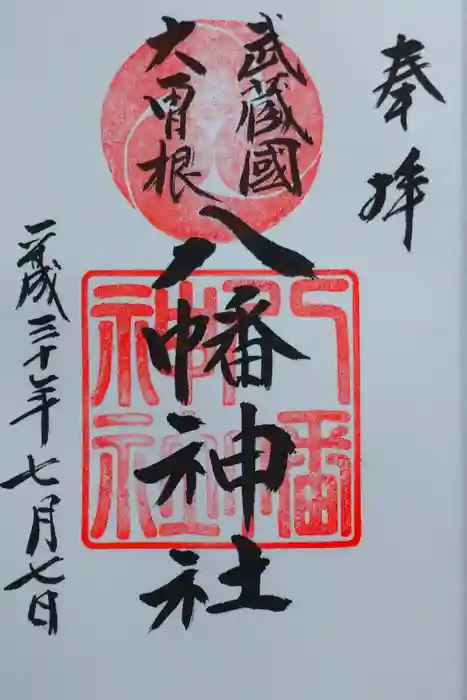 奉拝
武蔵國
大曽根
八幡神社
平成三十年七月七日
八幡
神社